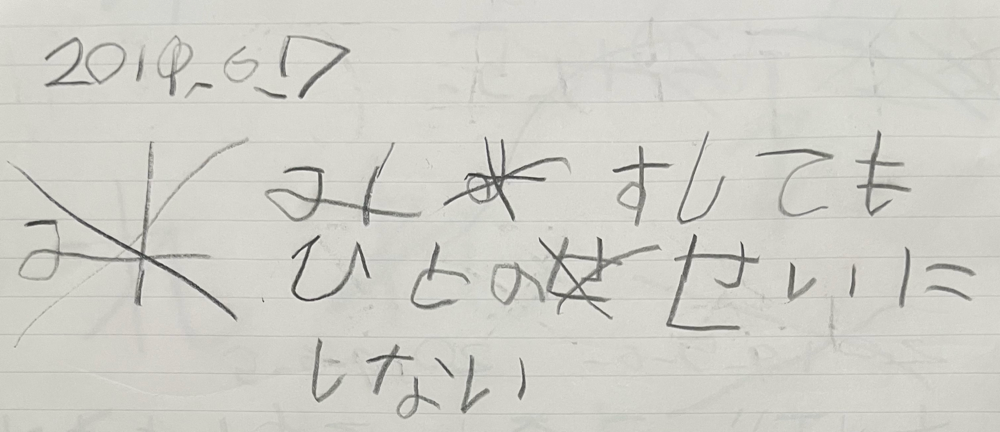 2019.6.17
みすしても
ひとのせいに
しない